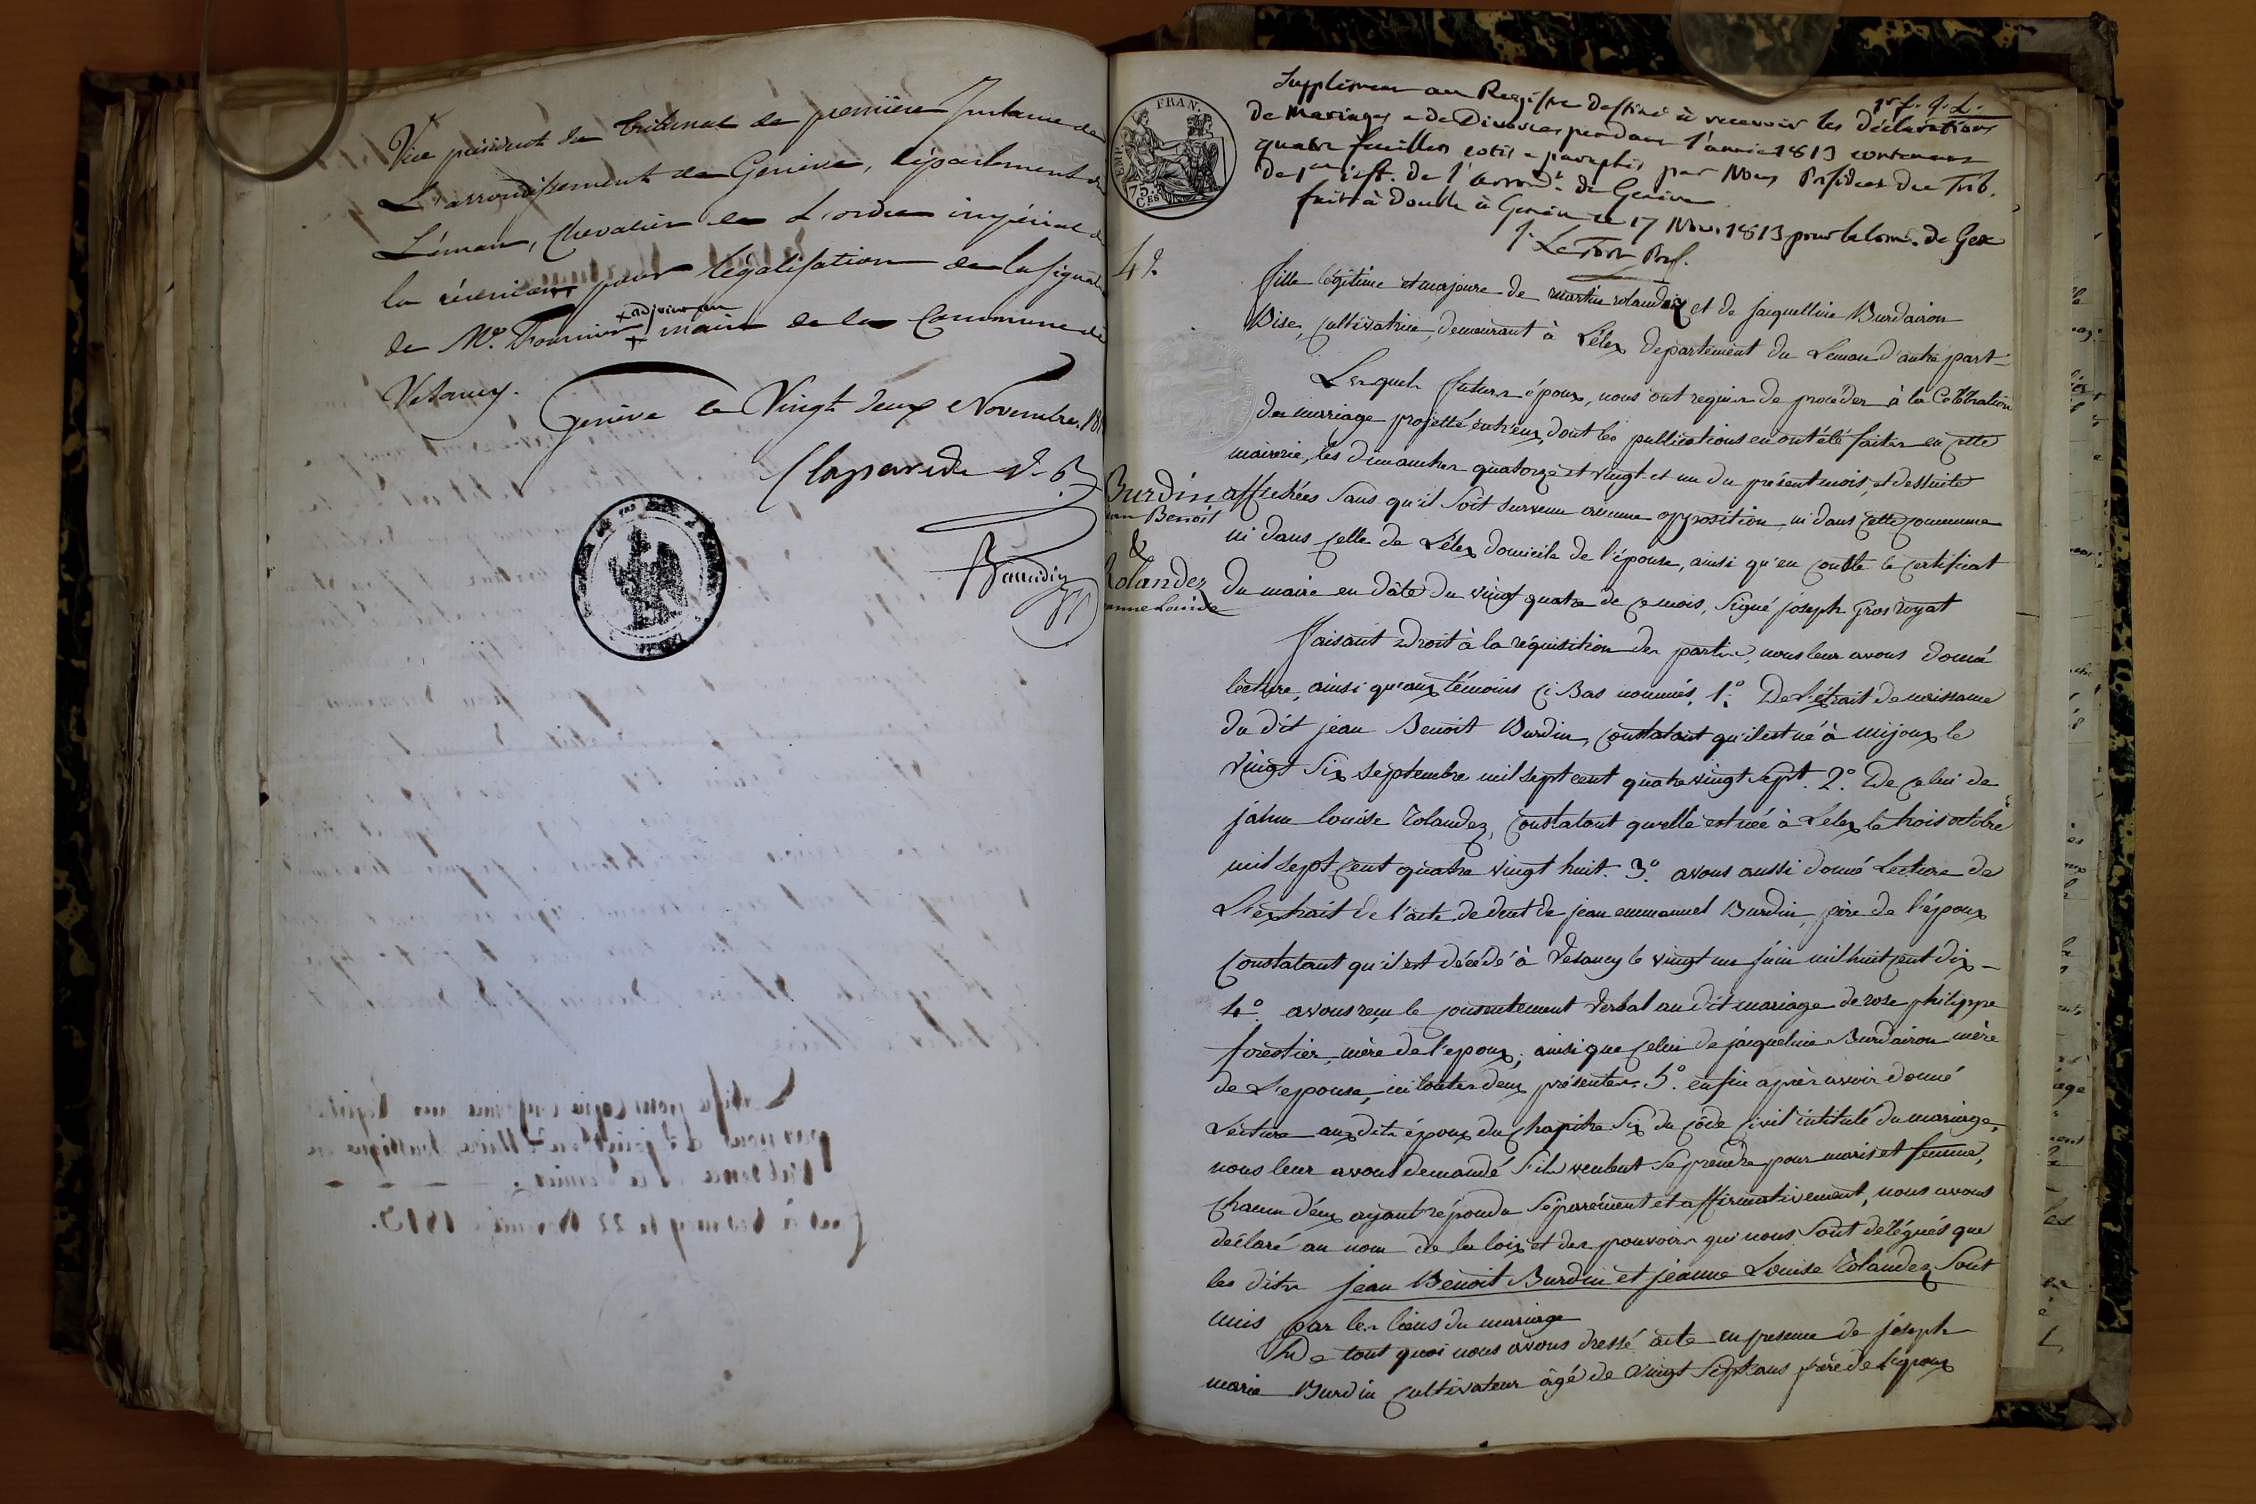 Vice président du tribunal de première Instance de
L'arrondissement de Genève, département du
Léman, Chevalier de L'ordre impérial de
la réunion pour légalisation de la signat
de Mr. Fournier x adjoint au maire de la Commune de
Vesancy.
Genève le Vingt deux Novembre 18
Claparede V. P.
1er f. J. L.
Supplément au Registre destiné à recevoir les déclarations
de Mariages & de Divorces pendant l'année 1813 contenant
quatre feuillets cotés & paraphés par Nous Président du Trib.
de 1ere inst. de l'Arrondt. de Genève
fait à double à Genève le 17 Nov. 1813 pour la Com. de Gex
J. LeFort Prés.
EMP. FRAN.
75. Ces
fille légitime et majeure de martin rolandez et de jaquelline Burdairon
Bise, cultivatrice, demeurant à Lélex departement du Leman d'autre part
Lesquels futurs époux, nous ont requis de procéder à la Célébration
du mariage projetté entr'eux, dont les publications en ont été faites en cette
mairerie, les dimanches quatorze et vingt et un du présent mois, et dessuite
affichées sans qu'il soit survenu aucune opposition ni dans cette commune
ni dans celle de Lélex domicile de l'épouse, ainsi qu'en conste le certificat
du maire en date du vingt quatre de ce mois, signé joseph Gros royat
Burdin
Benoit
&
Rolandez
anne Louise
Faisant droit à la réquisition des parties, nous leur avons donné
lecture, ainsi qu'aux témoins ci Bas nommés, 1.° De l'éxtrait de naissance
du dit jean Benoit Burdin, constatant qu'il est né à mijoux le
vingt six septembre mil sept cent quatre vingt sept. 2.° De celui de
jeanne louise rolandez, constatant qu'elle est née à Lelex le trois octobre
mil sept cent quatre vingt huit. 3.° avons aussi donné Lecture de
L'éxtrait de l'acte de deut de jean emmanuel Burdin, père de l'époux
Constatant qu'il est décédé à Vesancy le vingt un juin mil huit cent dix
4.° avons reçu le consentement verbal au dit mariage de rose philippe
forestier, mère de l'epoux; ainsi que celui de jaqueline Burdairon mère
de L'epouse, ici toutes deux présentes. 5.° enfin après avoir donné
Lecture aux dits époux du Chapitre six du côde civil intitulé du mariage,
nous leur avons demandé s'ils veulent se prendre pour maris et femme,
chacun d'eux ayant répondu séparément et affirmativement, nous avons
declaré au nom de la loix et des pouvoirs qui nous sont delégués que
les dits jean Benoit Burdin et jeanne Louise Rolandez sont
unis par les liens du mariage
De tout quoi nous avons dressé acte en presence de joseph
marie Burdin cultivateur âgé de vingt sept ans frère de l'époux